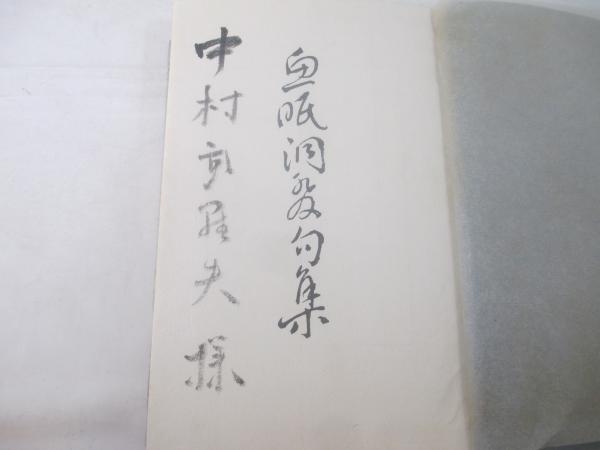 魚眠洞發句集
中村武羅夫様